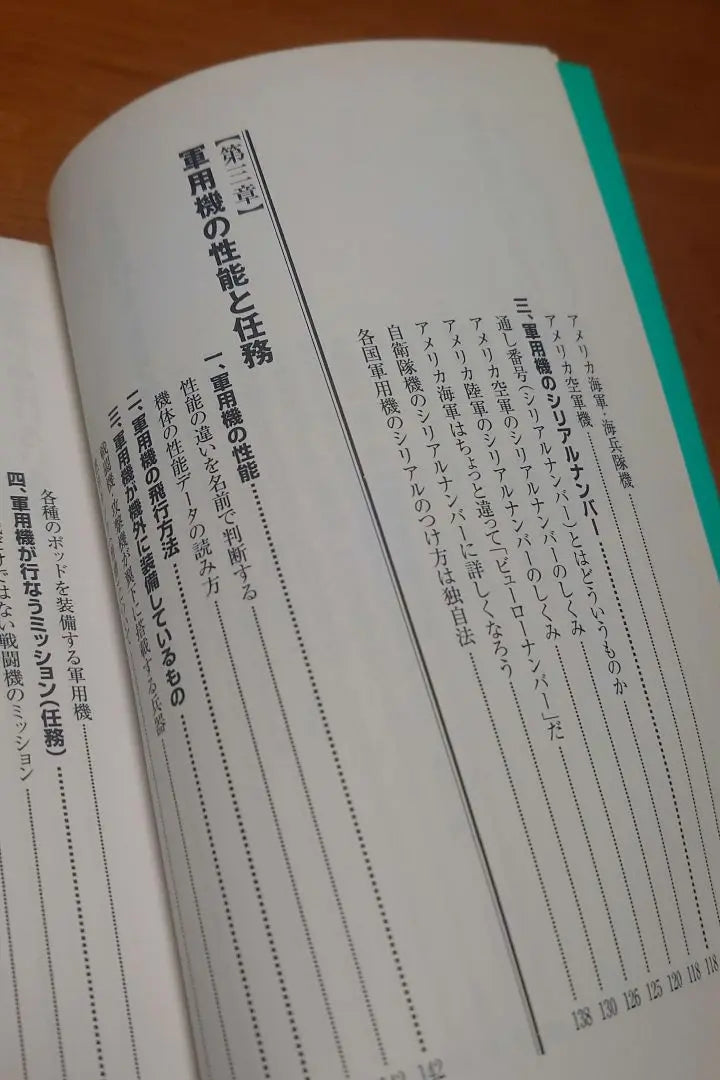 アメリカ海軍・海兵隊機
アメリカ空軍機
三、軍用機のシリアルナンバー 118
通し番号(シリアルナンバー)とはどういうものか 118
アメリカ空軍のシリアルナンバーのしくみ 120
アメリカ陸軍のシリアルナンバーのしくみ 125
アメリカ海軍はちょっと違って「ビューローナンバー」だ 126
自衛隊機のシリアルナンバーに詳しくなろう 130
各国軍用機のシリアルのつけ方は独自法 138
【第三章】
軍用機の性能と任務
一、軍用機の性能 142
性能の違いを名前で判断する
機体の性能データの読み方
二、軍用機の飛行方法
三、軍用機が機外に装備しているもの
戦闘機・攻撃機が翼下に搭載する兵器
各種のポッドを装備する軍用機
四、軍用機が行なうミッション(任務)
だけではない戦闘機のミッション